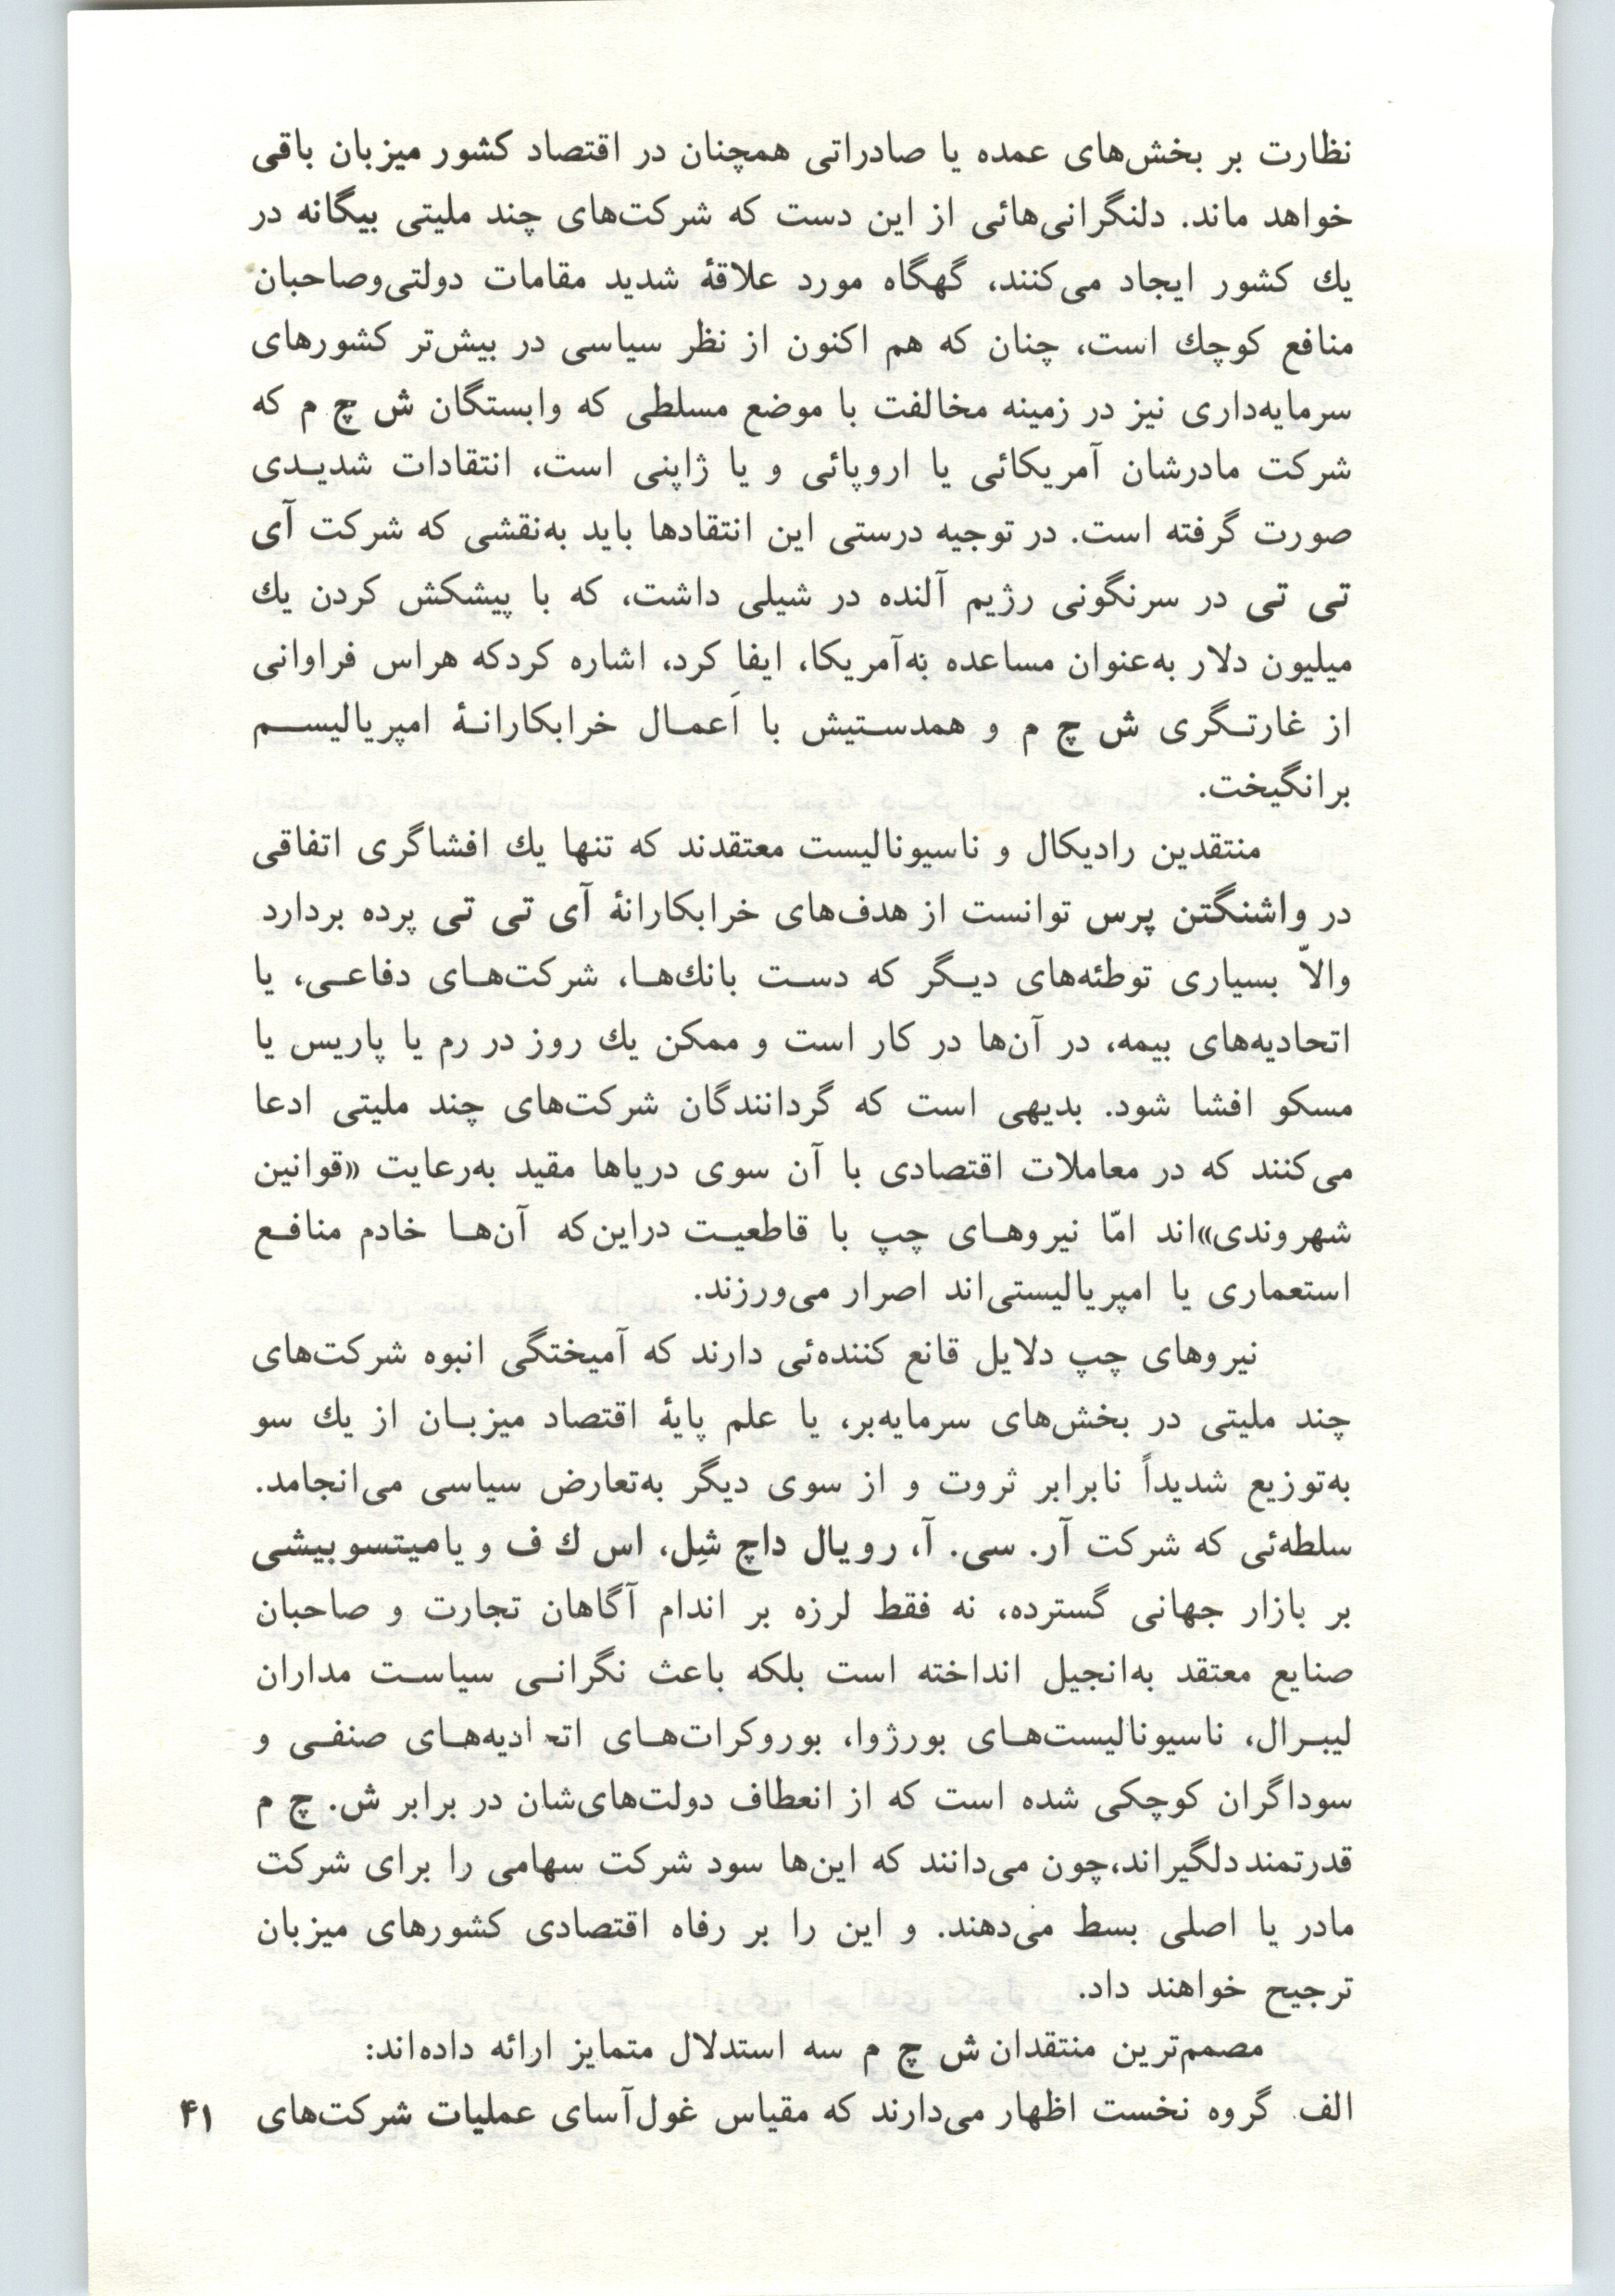 نظارت بر بخش‌های عمده یا صادراتی همچنان در اقتصاد کشور میزبان باقی
خواهد ماند. دلنگرانی‌هائی از این دست که شرکت‌های چند ملیتی بیگانه در
یك کشور ایجاد می‌کنند، گهگاه مورد علاقهٔ شدید مقامات دولتی‌وصاحبان
منافع کوچك است، چنان که هم اکنون از نظر سیاسی در بیش‌تر کشورهای
سرمایه‌داری نیز در زمینه مخالفت با موضع مسلطی که وابستگان ش چ م که
شرکت مادرشان آمریکائی یا اروپائی و یا ژاپنی است، انتقادات شدیـدی
صورت گرفته است. در توجیه درستی این انتقادها باید به‌نقشی که شرکت آی
تی تی در سرنگونی رژیم آلنده در شیلی داشت، که با پیشکش کردن یك
میلیون دلار به‌عنوان مساعده به‌آمریکا، ایفا کرد، اشاره کردکه هراس فراوانی
از غارتـگری ش چ م و همدسـتیش با اَعمـال خرابکارانـهٔ امپریالیسـم
برانگیخت.
منتقدین رادیکال و ناسیونالیست معتقدند که تنها یك افشاگری اتفاقی
در واشنگتن پرس توانست از هدف‌های خرابکارانهٔ آی تی تی پرده بردارد
والاّ بسیاری توطئه‌های دیـگر که دسـت بانك‌هـا، شرکت‌هـای دفاعـی، یا
اتحادیه‌های بیمه، در آن‌ها در کار است و ممکن یك روز در رم یا پاریس یا
مسکو افشا شود. بدیهی است که گردانندگان شرکت‌های چند ملیتی ادعا
می‌کنند که در معاملات اقتصادی با آن سوی دریاها مقید به‌رعایت «قوانین
شهروندی»اند امّا نیروهـای چپ با قاطعیـت دراین‌که آن‌هـا خادم منافـع
استعماری یا امپریالیستی‌اند اصرار می‌ورزند.
نیروهای چپ دلایل قانع کننده‌ئی دارند که آمیختگی انبوه شرکت‌های
چند ملیتی در بخش‌های سرمایه‌بر، یا علم پایهٔ اقتصاد میزبـان از یك سو
به‌توزیع شدیداً نابرابر ثروت و از سوی دیگر به‌تعارض سیاسی می‌انجامد.
سلطه‌ئی که شرکت آر. سی. آ، رویال داچ شِل، اس ك ف و یامیتسوبیشی
بر بازار جهانی گسترده، نه فقط لرزه بر اندام آگاهان تجارت و صاحبان
صنایع معتقد به‌انجیل انداخته است بلکه باعث نگرانـی سیاسـت مداران
لیبـرال، ناسیونالیست‌هـای بورژوا، بوروکرات‌هـای اتحادیه‌هـای صنفـی و
سوداگران کوچکی شده است که از انعطاف دولت‌های‌شان در برابر ش. چ م
قدرتمنددلگیراند،چون می‌دانند که این‌ها سود شرکت سهامی را برای شرکت
مادر یا اصلی بسط می‌دهند. و این را بر رفاه اقتصادی کشورهای میزبان
ترجیح خواهند داد.
مصمم‌ترین منتقدان ش چ م سه استدلال متمایز ارائه داده‌اند:
الف. گروه نخست اظهار می‌دارند که مقیاس غول‌آسای عملیات شرکت‌های
۴۱